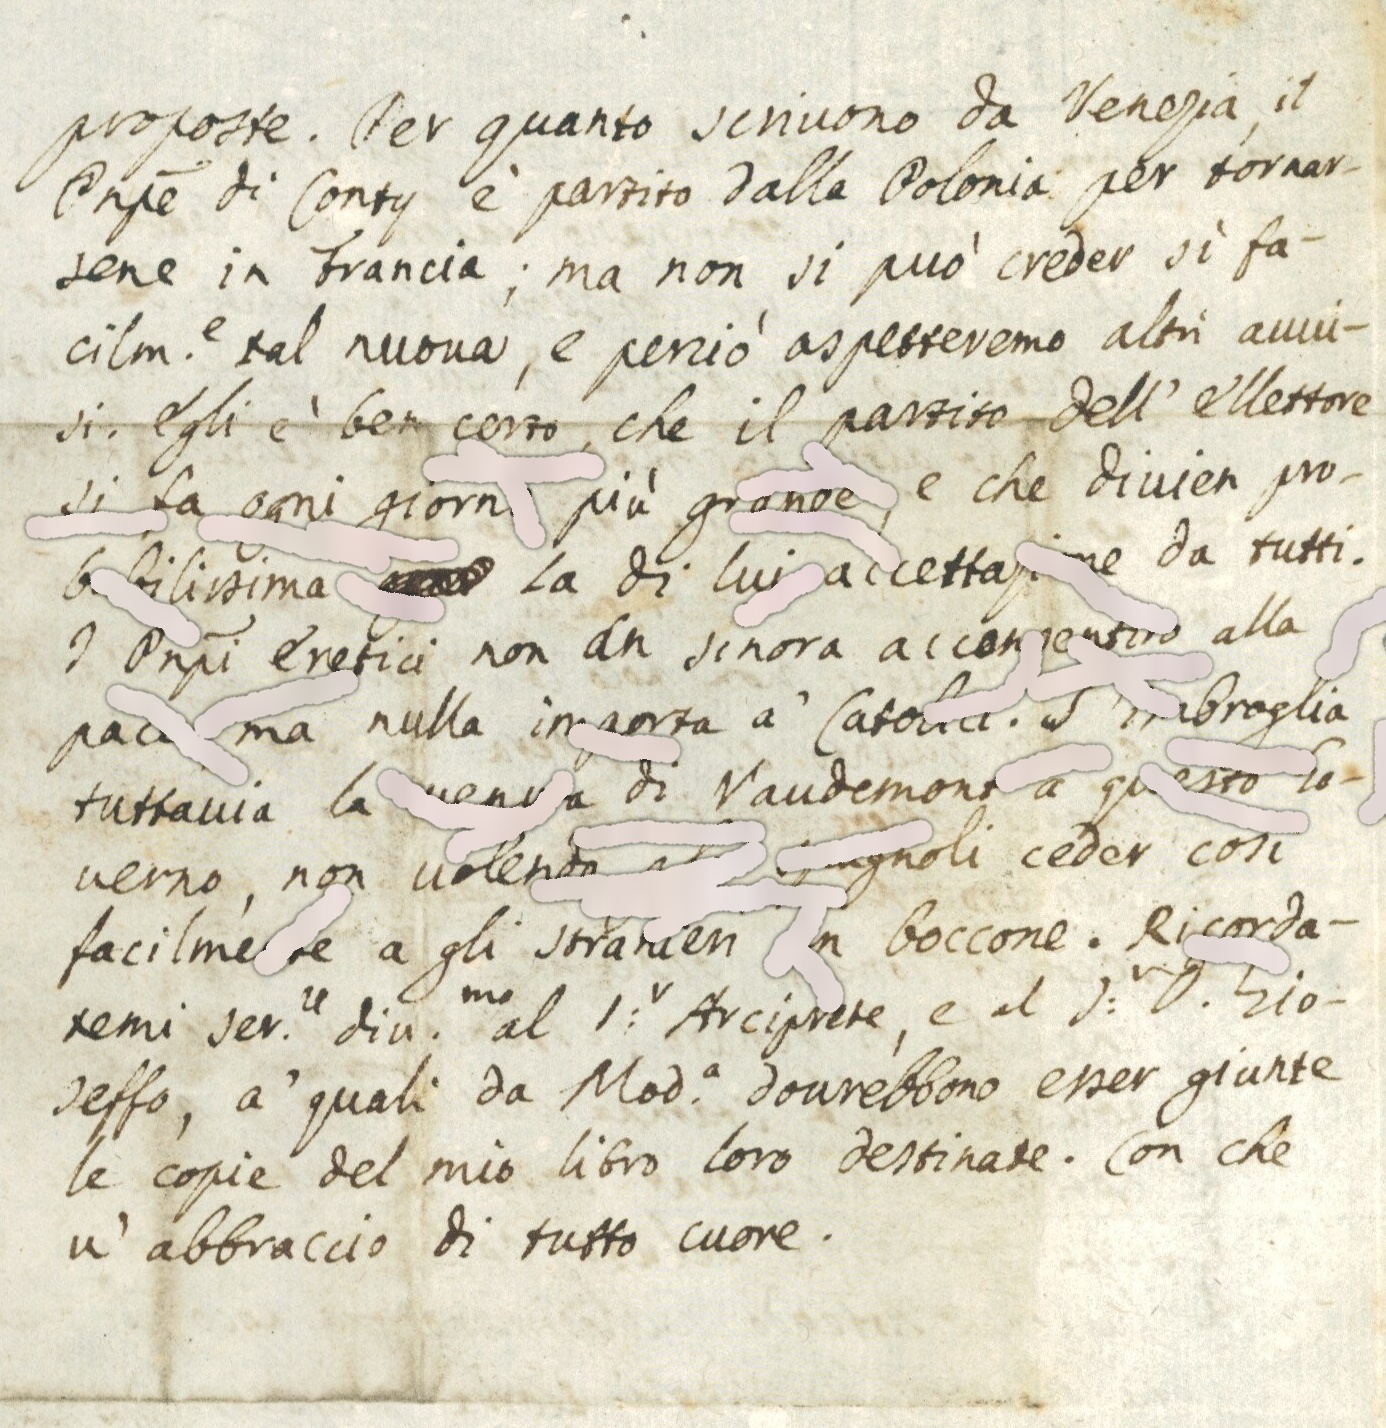 proposte. Per quanto scriuono da Venezia, il
Pnpē di Conty è partito dalla Polonia per tornar-
sene in Francia; ma non si può creder sì fa-
cilm.e tal nuoua, e perciò aspetteremo altri auui-
si. Egli è ben certo, che il partito dell' Ellettore
si fa ogni giorno più grande, e che diuien pro-
babilissima la di lui accettazione da tutti.
I Pnpi Eretici non àn sinora acconsentito alla
pace ma nulla importa a' Catolici. S'imbroglia
tuttauia la venuta di Vaudemont a questo Go-
uerno, non uolendo Spagnoli ceder così
facilmente a gli stranieri un boccone. Ricorda-
temi ser.re diu.mo al S:r Arciprete, e al S:r D. Gio-
seffo, a' quali da Mod.a dourebbono esser giunte
le copie del mio libro loro destinate. Con che
u' abbraccio di tutto cuore.